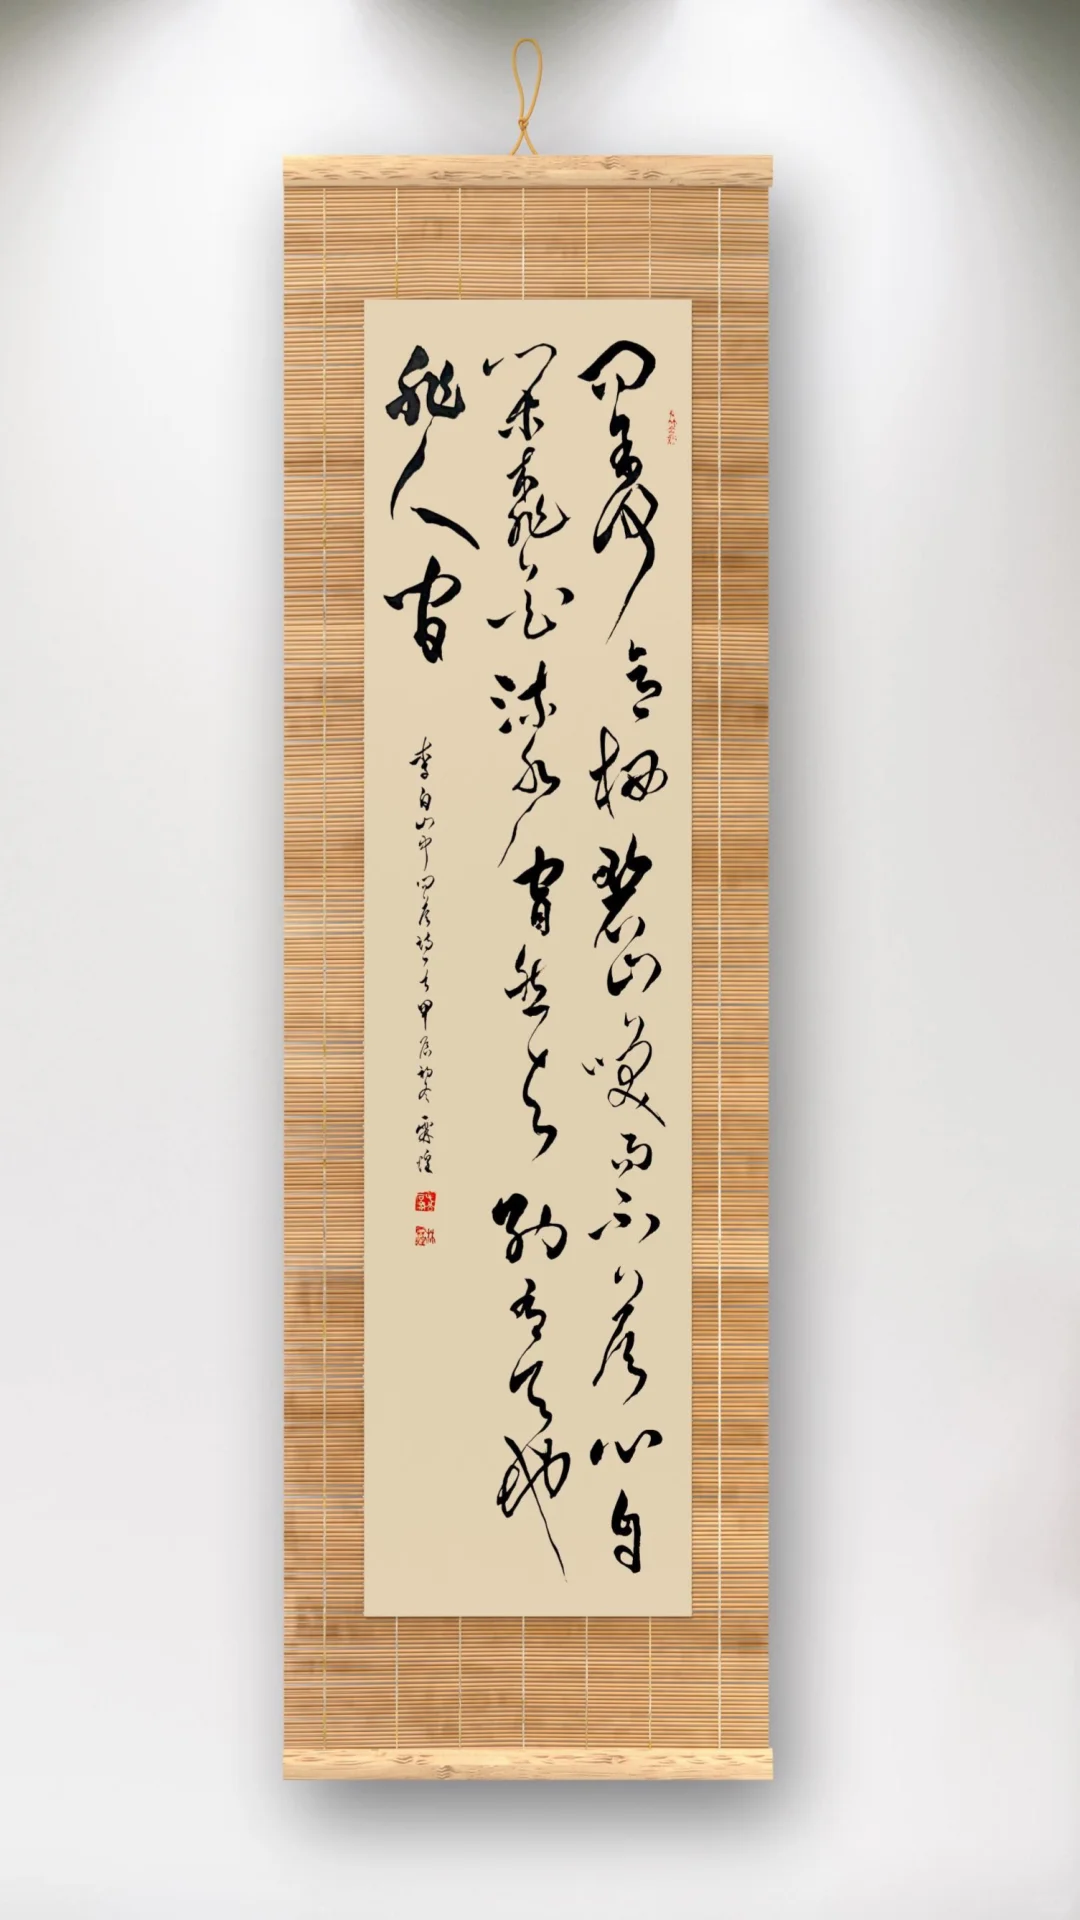 問余何意栖碧山笑而不答心自
閑桃花流水窅然去别有天地
非人間
李白山中問答詩一首甲辰初冬霖煌